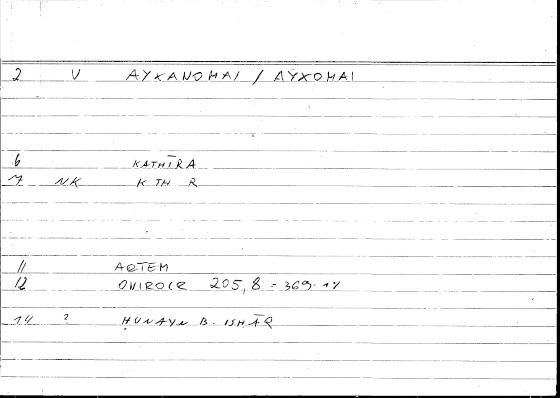 2 V AYXANOMAI / AYXOMAI
6 KATHĪRA
7 NK K TH R
11 ARTEM
12 ONIROCR 205,8 = 369.14
14 ? ḤUNAYN B. ISḤĀQ